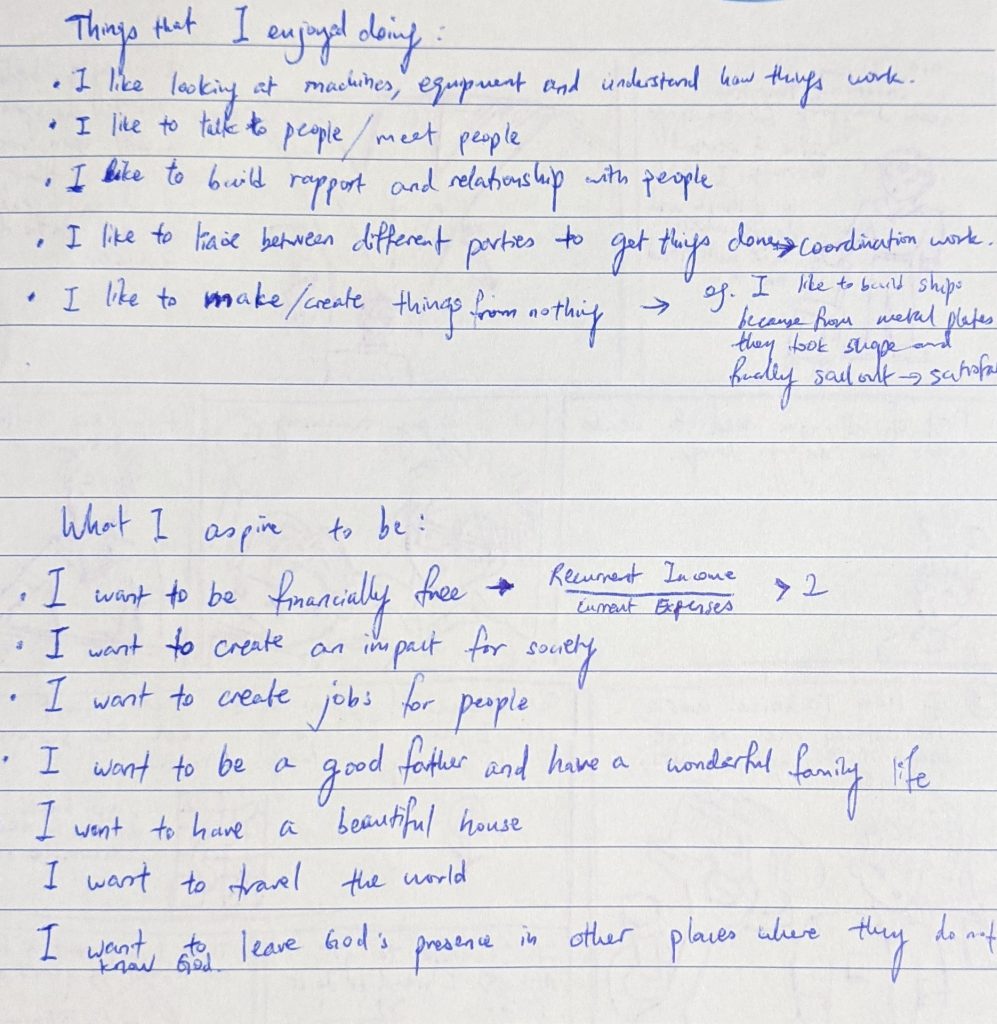 Things that I enjoyed doing:
• I like looking at machines, equipment and understand how things work.
• I like to talk to people/meet people
• I like to build rapport and relationship with people
• I like to liase between different parties to get things done → coordination work.
• I like to make/create things from nothing → eg. I like to build ships
because from metal plates
they took shape and
finally sail out → satisfa
What I aspire to be:
• I want to be financially free → Recurrent Income
Current Expenses > 2
• I want to create an impact for society
• I want to create jobs for people
• I want to be a good father and have a wonderful family life
I want to have a beautiful house
I want to travel the world
I want to leave God's presence in other places where they do not
know God.